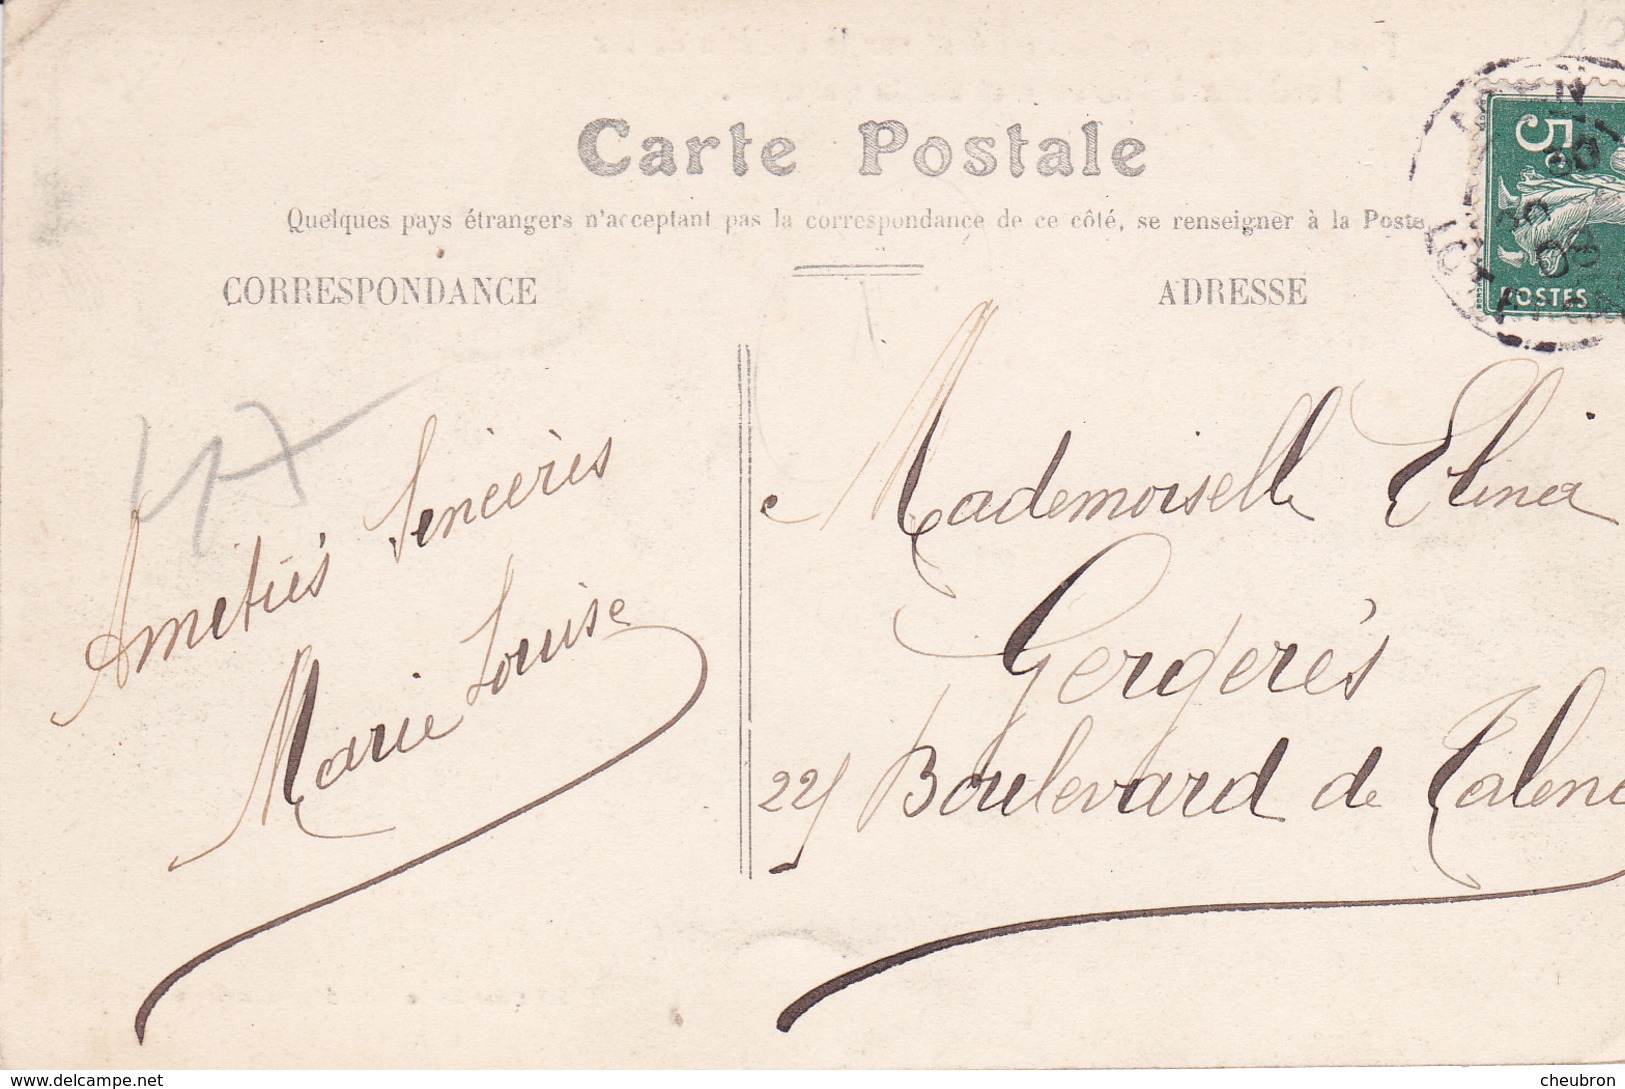 Carte Postale
Quelques pays étrangers n'acceptant pas la correspondance de ce côté, se renseigner à la Poste
CORRESPONDANCE
ADRESSE
5c
POSTES
47
Amitiés Sincères
Marie Louise
Mademoiselle Elina
Gergerès
22 Boulevard de Talence
www.delcampe.net
cheubron